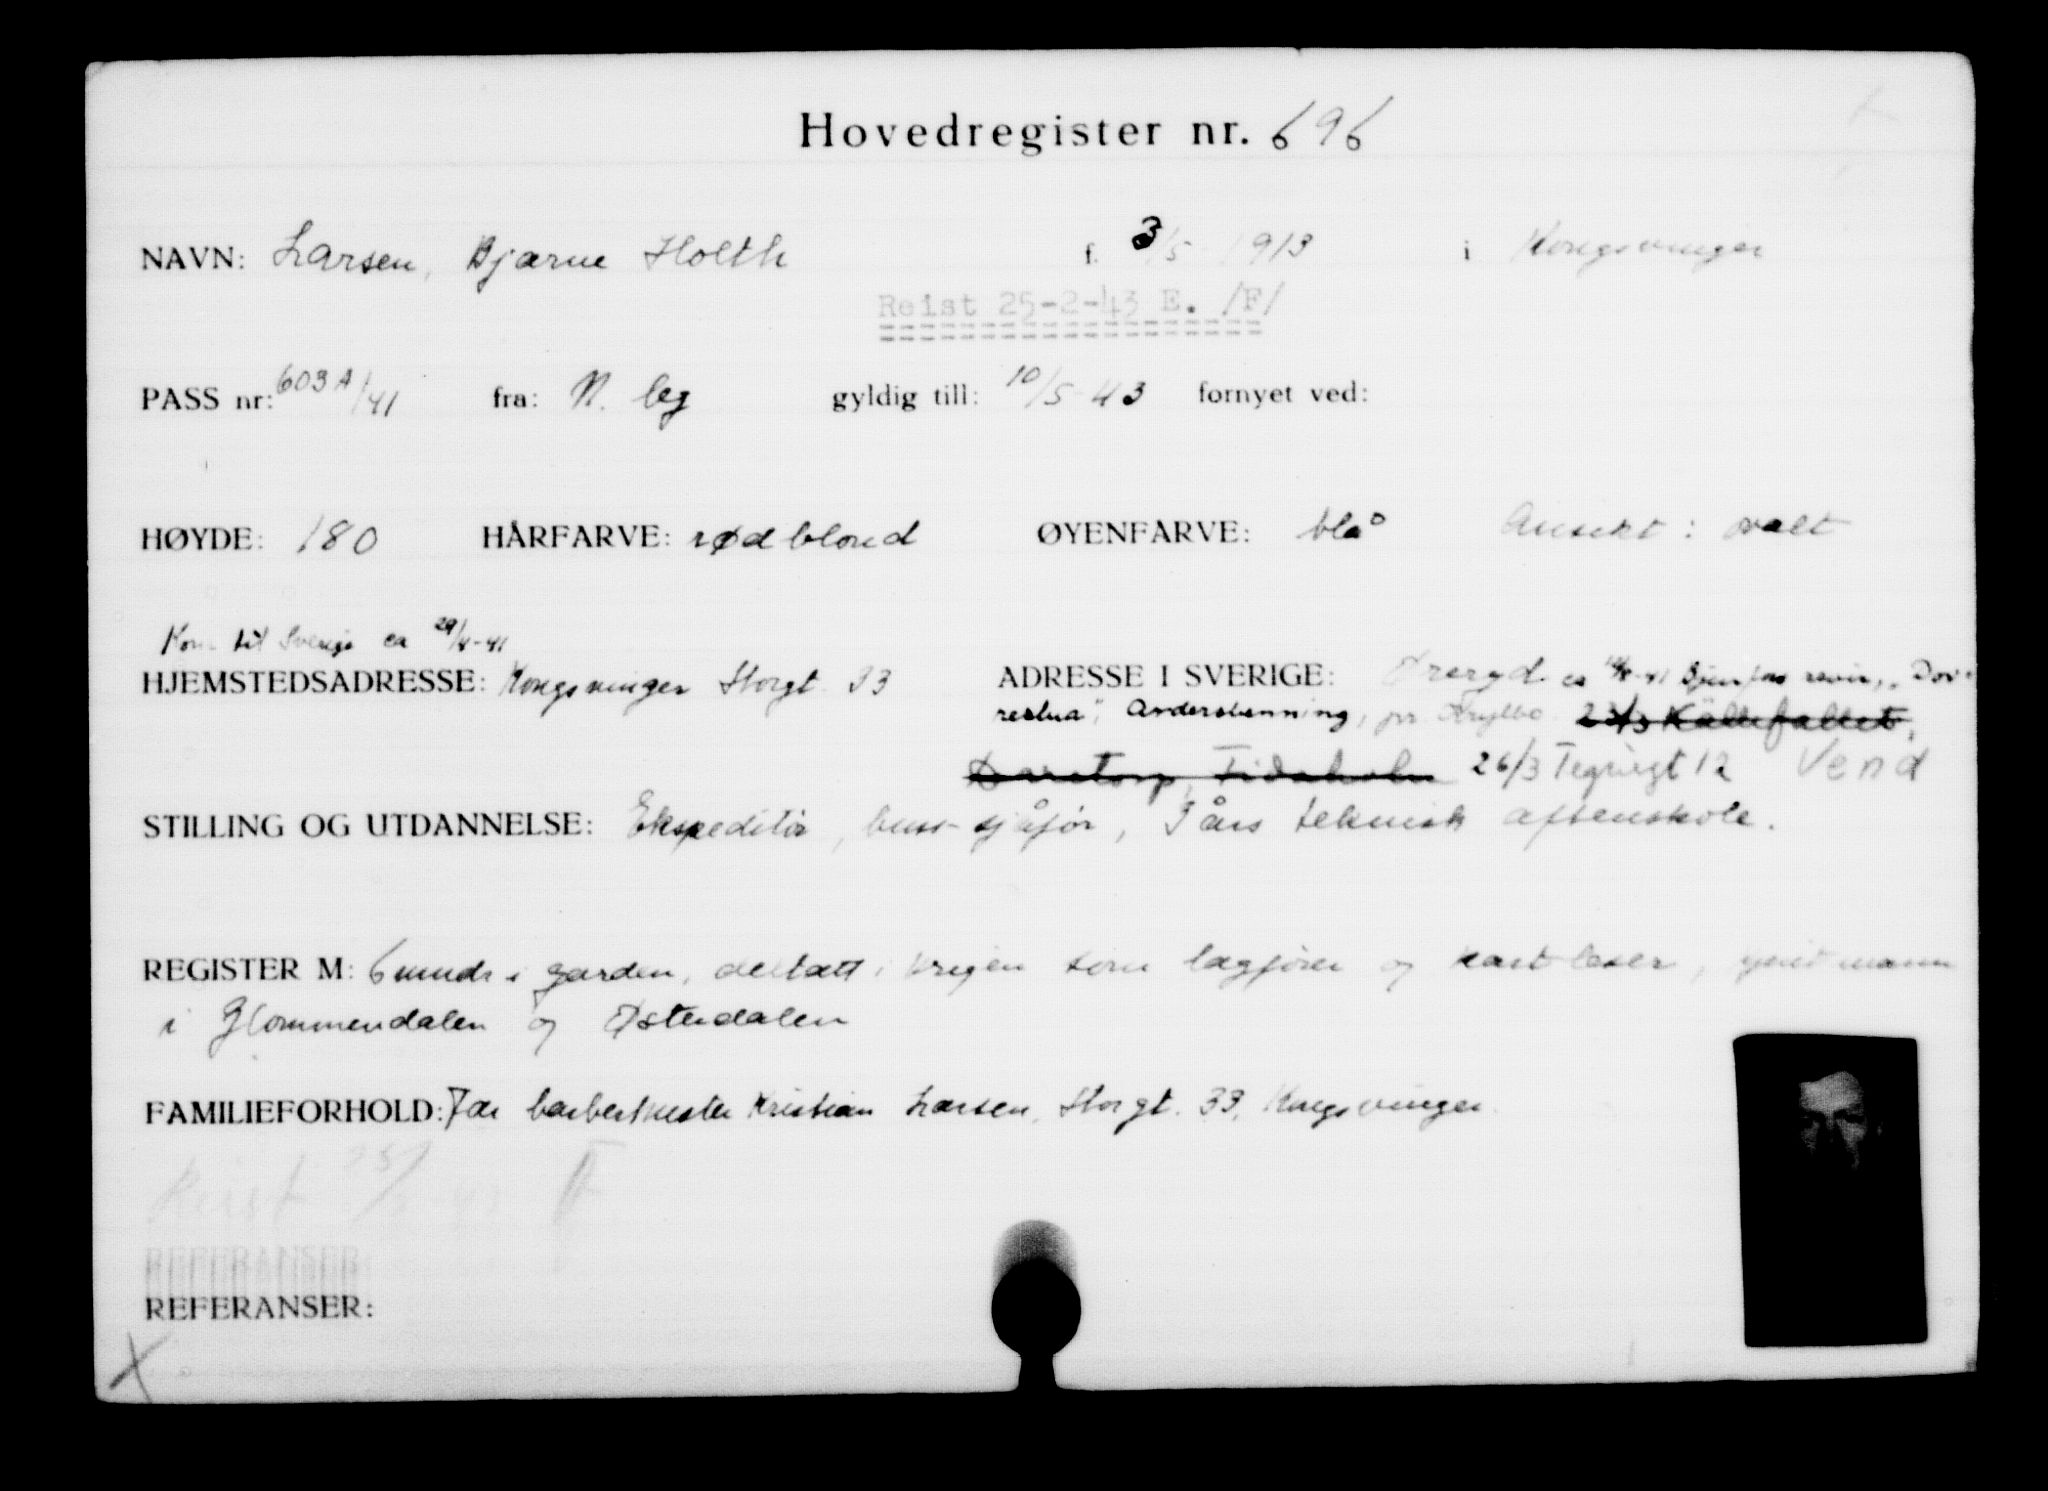 Hovedregister nr. 696
NAVN: Larsen, Bjarne Holth f. 3/5 1913 i Kongsvinger
Reist 25-2-43 E. /F/
PASS nr: 603 A/41 fra: N. leg gyldig till: 10/5 43 fornyet ved:
HØYDE: 180 HÅRFARVE: rødblond ØYENFARVE: blå Ansikt: ovalt
Kom til Sverige ca 29/4-41
HJEMSTEDSADRESSE: Kongsvinger Storgt. 33 ADRESSE I SVERIGE: Øreryd ca -41 revir, "Dov-
restua", Andersbenning, pr. Krylbo 23/3 Källefallet,
Daretorp, Tidaholm 26/3 Tegnérgt 12 Vend
STILLING OG UTDANNELSE: Ekspeditør, buss-sjåfør, 3 års teknisk aftenskole.
REGISTER M: 6 mndr i garden, deltatt i krigen som lagfører og kartleser, kjent mann
i Glommendalen og Østerdalen
FAMILIEFORHOLD: Far barbermester Kristian Larsen, Storgt. 33, Kongsvinger
Reist 25/2-43 F
REFERANSER:
X